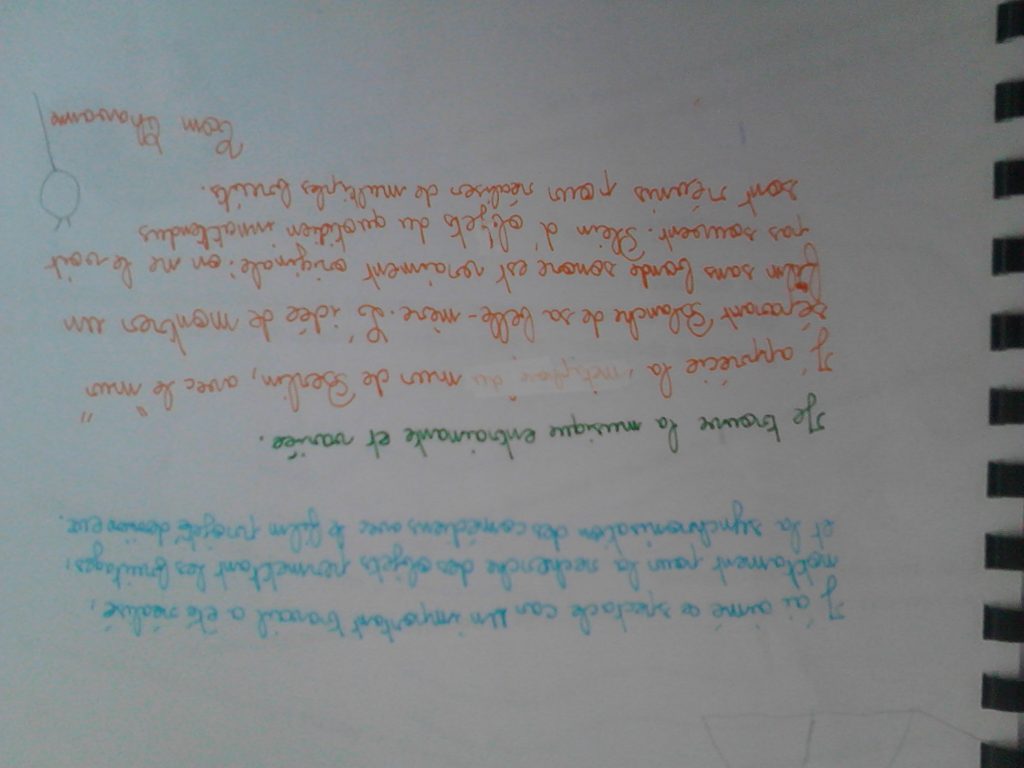 J'ai aimé ce spectacle car un important travail a été réalisé,
nottament pour la recherche des objets permettant les bruitages,
et la synchronisation des comédiens avec le film projeté derrière eux.
Je trouve la musique entrainante et variée.
J'apprécie la métaphore du mur de Berlin, avec le "mur"
séparant Blanche de sa belle-mère. L'idée de montrer un
film sans bande sonore est vraiment originale: on ne le voit
pas souvent. Plein d'objets du quotidien innattendus
sont réunis pour réaliser de multiples bruits.
Tom